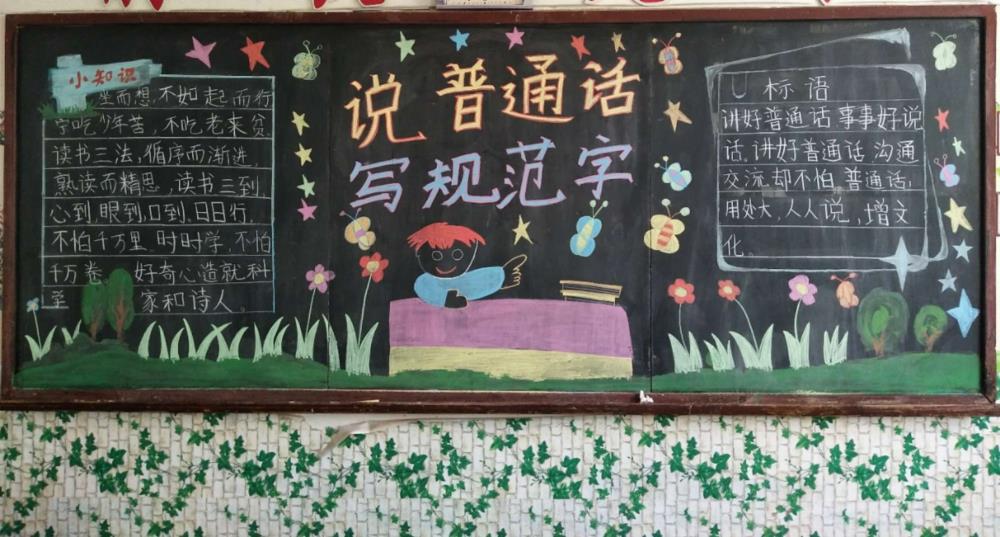 小知识
坐而想,不如起而行
宁吃少年苦,不吃老来贫.
读书三法,循序而渐进.
熟读而精思,读书三到,
心到,眼到,口到,日日行,
不怕千万里,时时学,不怕
千万卷。好奇心造就科
学家和诗人。
说普通话
写规范字
标语
讲好普通话事事好说
话.讲好普通话,沟通
交流却不怕.普通话,
用处大,人人说,增文
化。